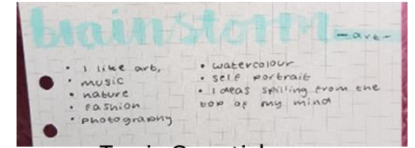 brainstorm -art-
• I like art,
• music
• nature
• fashion
• photography
• watercolour
• self portrait
• Ideas spilling from the
top of my mind